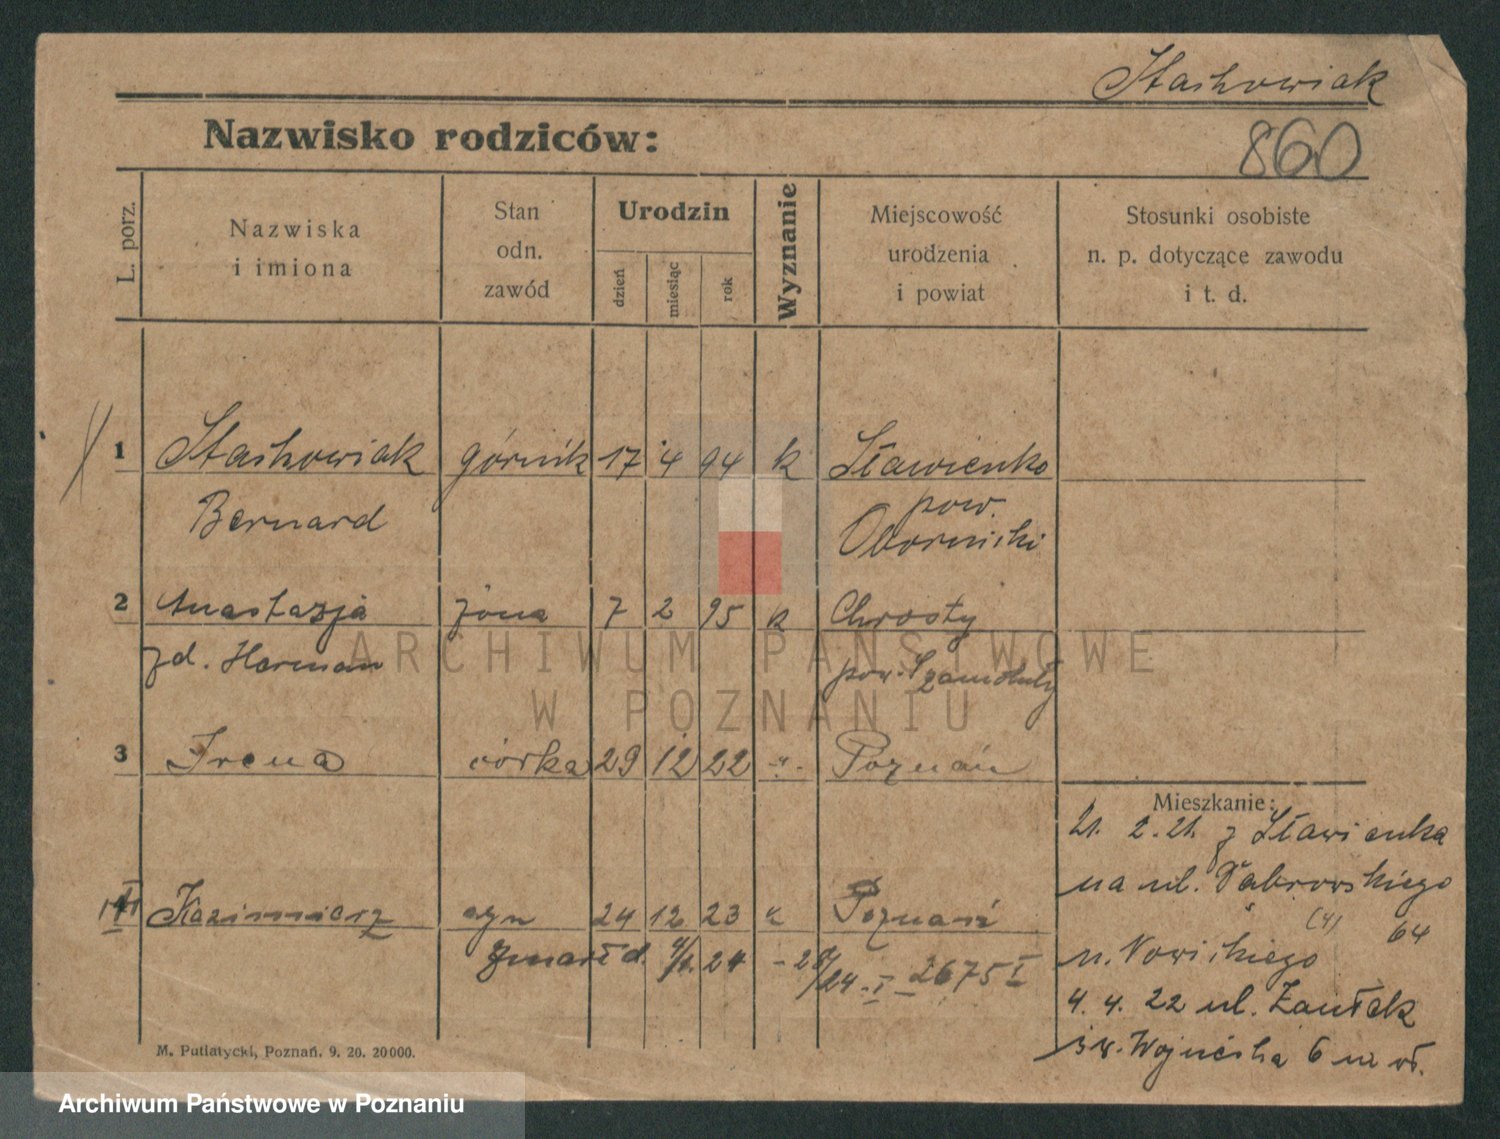 Stachowiak
Nazwisko rodziców:
860
L. porz.
Nazwiska
i imiona
Stan
odn.
zawód
Urodzin
dzień
miesiąc
rok
Wyznanie
Miejscowość
urodzenia
i powiat
Stosunki osobiste
n. p. dotyczące zawodu
i t. d.
1 Stachowiak górnik 17 4 94 k Sławienko
Bernard pow. Obornicki
2 Anastazja żona 7 2 95 k Chrosty
zd. Herman pow. Szamotuły
3 Irena córka 29 12 22 -"- Poznań
Kazimierz syn 24 12 23 " Poznań
zmarł d. 4/1. 24 - 2675 I
Mieszkanie:
21. 2. 21. z Sławienka
na ul. Dąbrowskiego
64
u. Nowickiego
4. 4. 22 ul. Zaułek
św. Wojciecha 6 m wł.
M. Putiatycki, Poznań. 9. 20. 20000.
ARCHIWUM PAŃSTWOWE
W POZNANIU
Archiwum Państwowe w Poznaniu